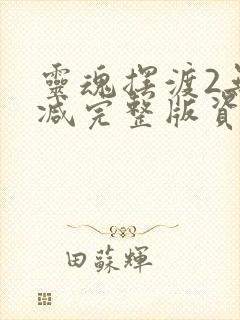 靈魂擺渡2無
減完整版資
田蘇輝